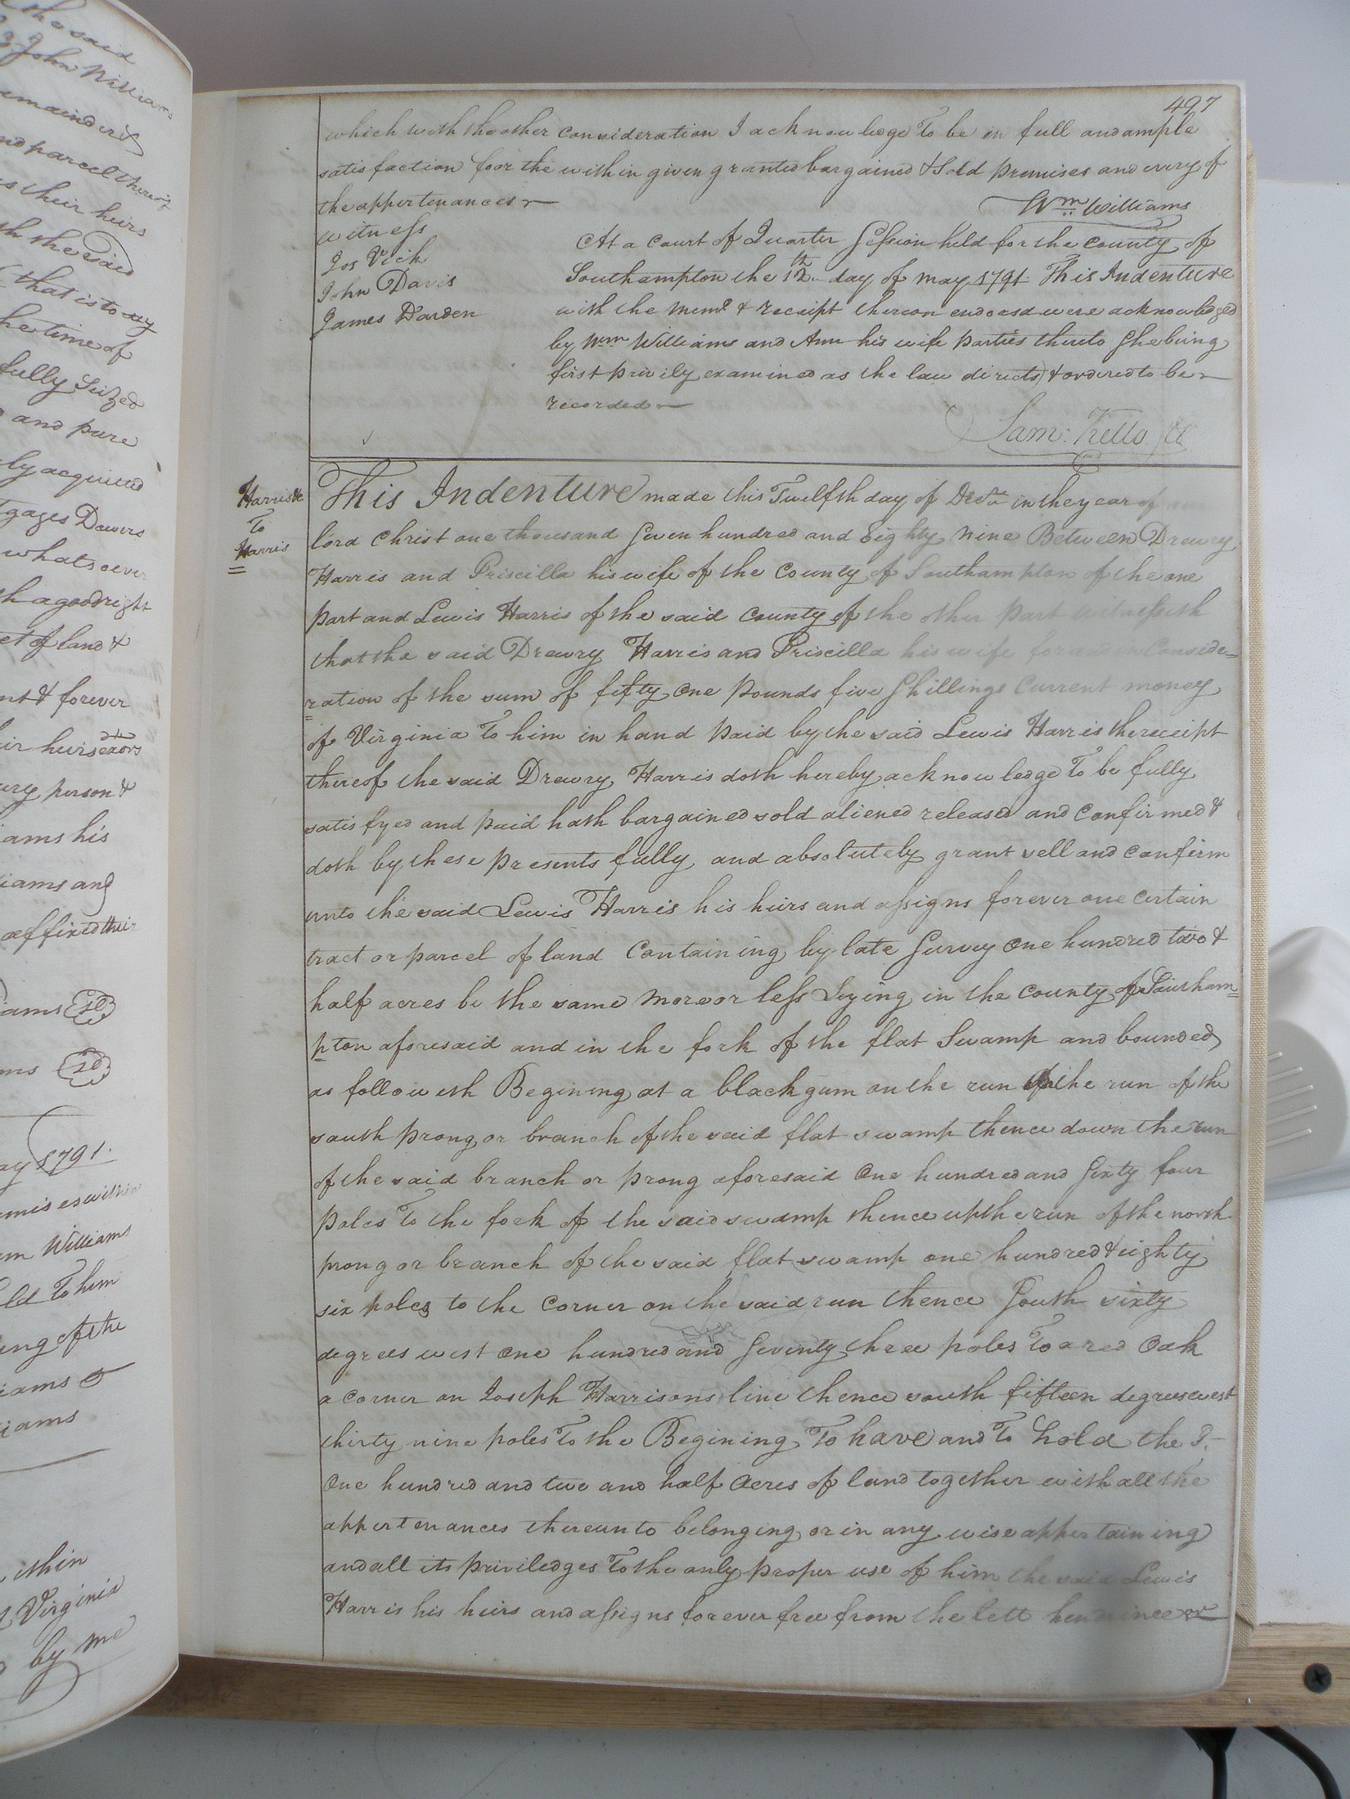 the said
John Williams
remainder &
and parcel thereof
as their heirs
the said
that is to say
the time of
fully Seized
and pure
ly acquired
gages Dowers
whatsoever
a good right
ct of land &
nt & forever
ir heirs exors
ery person &
iams his
iams and
affixed their
ams
ms
ay 1791.
emises within
m Williams
old To him
ing of the
iams
iams
ithin
Virginia
by me
497
which with the other Consideration I acknowledge To be in full and ample
satisfaction foor the within given granted bargained & Sold Premises and every of
the appertenances
Wm. Williams
witness
Jos Vick
John Davis
James Darden
At a Court of Quarter Session held for the County of
Southampton the 12th day of may 1791 This Indenture
with the Meml. & receipt thereon endorsd were acknowledged
by Wm Williams and Ann his wife Parties thereto She being
first Privily examined as the law directs & ordered to be
recorded
Sam: Kello CC
Harris &c
To
Harris
This Indenture made this Twelfth day of Decr. in the year of
lord Christ one thousand Seven hundred and Eighty Nine Between Drewry
Harris and Priscilla his wife of the County of Southampton of the one
Part and Lewis Harris of the said County of the other Part witnesseth
that the said Drewry Harris and Priscilla his wife for and in Conside=
ration of the sum of fifty one Pounds five Shillings Current money
of Virginia To him in hand Paid by the said Lewis Harris the receipt
thereof the said Drewry Harris doth hereby acknowledge To be fully
satisfyed and paid hath bargained sold aliened released and Confirmed &
doth by these presents fully and absolutely grant sell and Confirm
unto the said Lewis Harris his heirs and assigns forever one Certain
tract or parcel of land Containing by late Survey One hundred two &
half acres be the same More or less Lying in the County of Southam=
pton aforesaid and in the fork of the flat Swamp and bounded
as followeth Begining at a black gum on the run of the run of the
south prong or branch of the said flat swamp thence down the run
of the said branch or prong aforesaid One hundred and Sixty four
Poles To the fork of the said swamp thence up the run of the north
prong or branch of the said flat swamp one hundred & eighty
six poles to the Corner on the said run thence South sixty
degrees west One hundred and Seventy three poles To a red Oak
a Corner on Joseph Harrisons line thence south fifteen degrees west
thirty nine poles To the Begining To have and To hold the S.
One hundred and two and half Acres of land together with all the
appertenances thereunto belonging or in any wise appertaining
and all its priviledges To the only proper use of him the said Lewis
Harris his heirs and assigns forever free from the lett